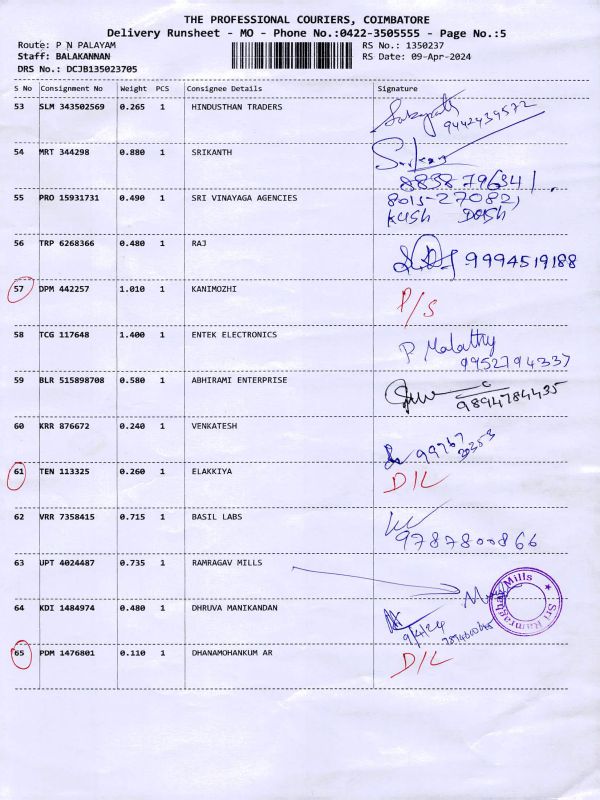 THE PROFESSIONAL COURIERS, COIMBATORE
Delivery Runsheet - MO - Phone No.:0422-3505555 - Page No.:5
Route: P N PALAYAM RS No.: 1350237
Staff: BALAKANNAN RS Date: 09-Apr-2024
DRS No.: DCJB135023705
S No Consignment No Weight PCS Consignee Details Signature
53 SLM 343502569 0.265 1 HINDUSTHAN TRADERS
9442439572
54 MRT 344298 0.880 1 SRIKANTH
8838796341
55 PRO 15931731 0.490 1 SRI VINAYAGA AGENCIES 8015-270821
KUSH DASH
56 TRP 6268366 0.480 1 RAJ 9994519188
57 DPM 442257 1.010 1 KANIMOZHI P/S
58 TCG 117648 1.400 1 ENTEK ELECTRONICS P Malathy
9952794337
59 BLR 515898708 0.580 1 ABHIRAMI ENTERPRISE
9894784435
60 KRR 876672 0.240 1 VENKATESH
99767 30353
61 TEN 113325 0.260 1 ELAKKIYA D/L
62 VRR 7358415 0.715 1 BASIL LABS
9787800866
63 UPT 4024487 0.735 1 RAMRAGAV MILLS
Sri Ramraghav Mills
64 KDI 1484974 0.480 1 DHRUVA MANIKANDAN
9/4/24
65 PDM 1476801 0.110 1 DHANAMOHANKUM AR D/L